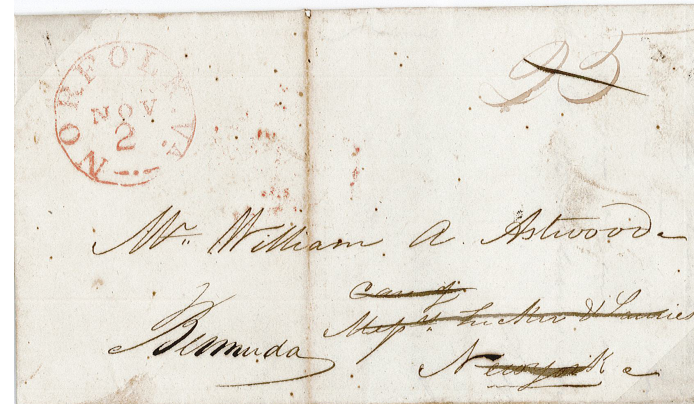 NORFOLK Va.
NOV
2
25
Mr. William A. Astwood
care of
Messrs Tucker & Lauries
Bermuda
New york